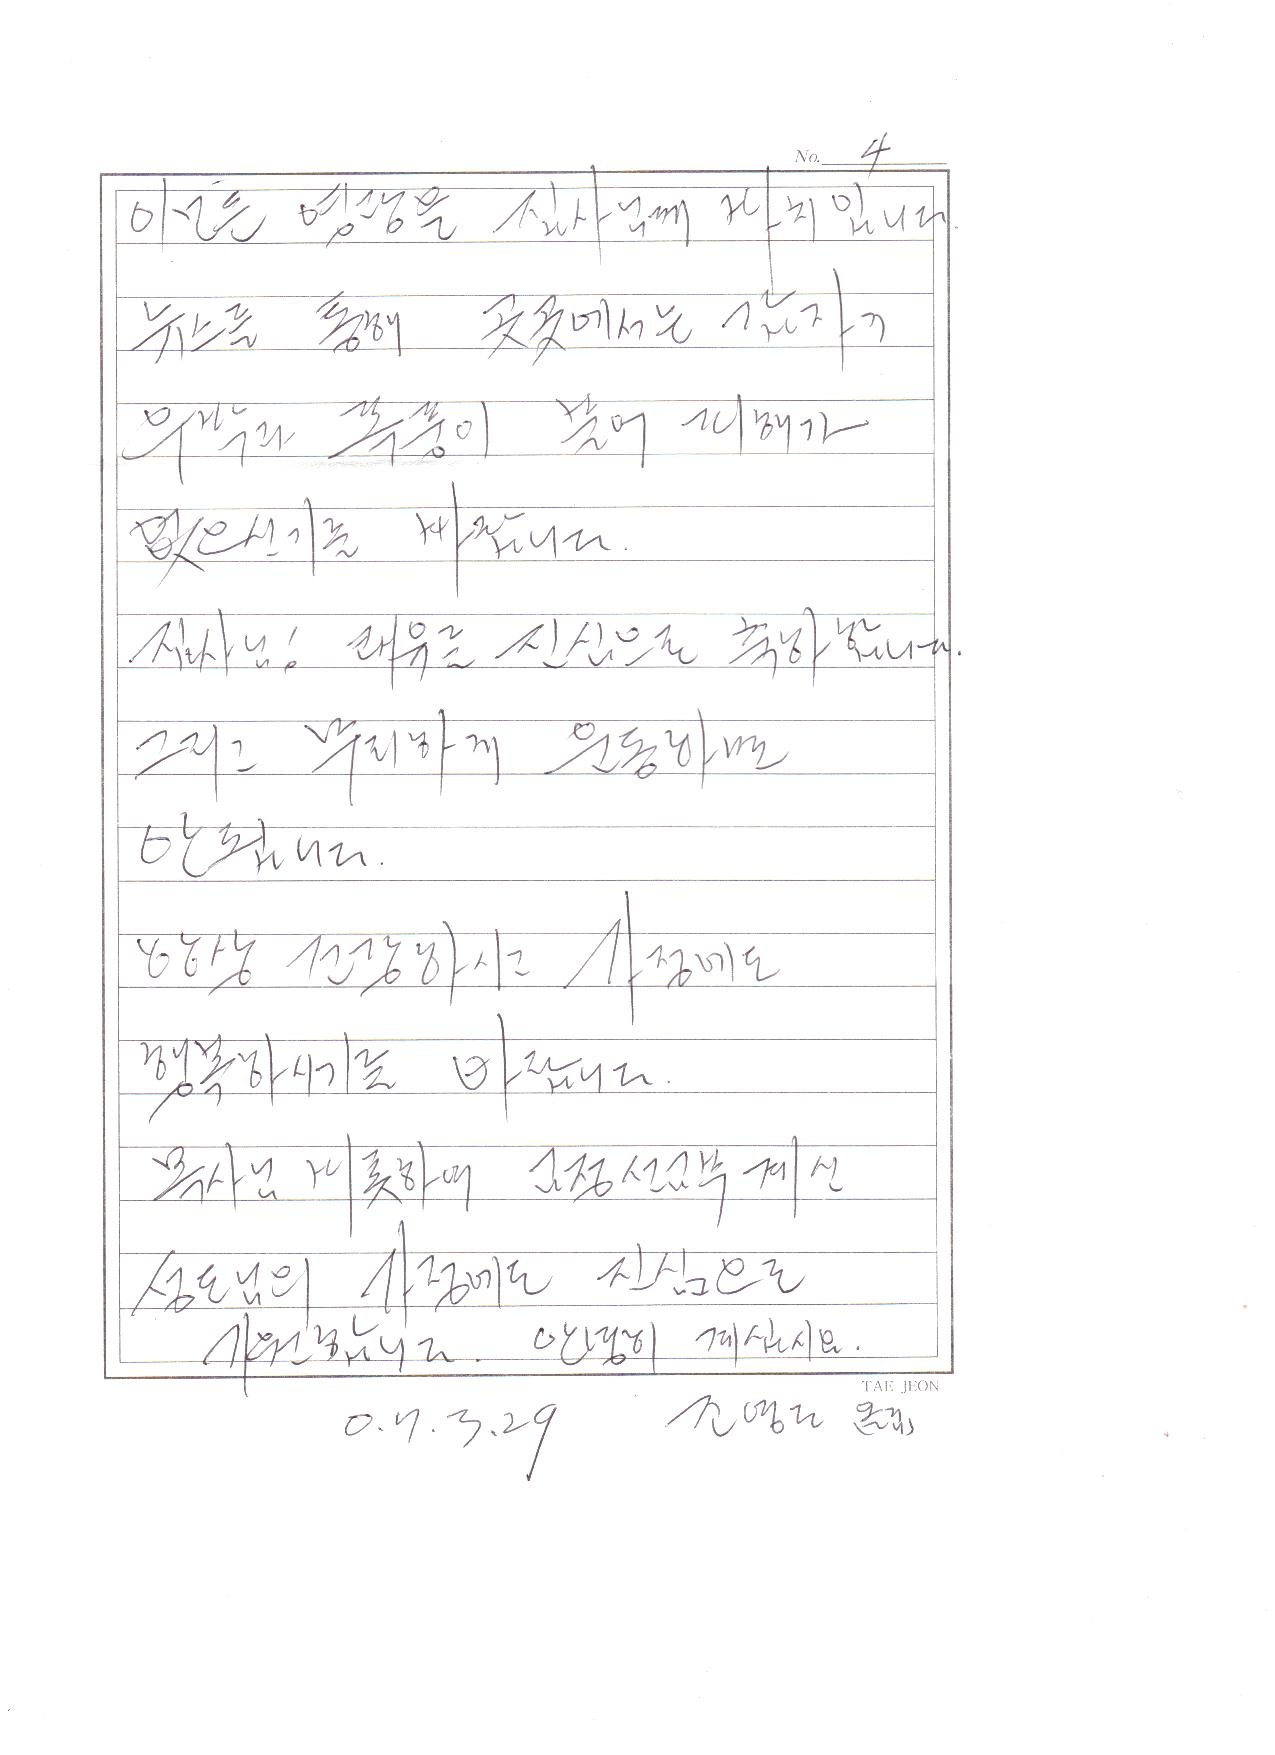 No. 4
이 모든 영광을 집사님께 바칩니다.
뉴스를 통해 곳곳에서는 갑자기
우박과 폭풍이 불어 피해가
없으신기를 바랍니다.
집사님! 쾌유를 진심으로 축하합니다.
그리고 무리하게 운동하면
안됩니다.
항상 건강하시고 가정에도
행복하시기를 바랍니다.
목사님 비롯하여 교정선교부 계신
성도님의 가정에도 진심으로
기원합니다. 안녕히 계십시요.
TAE JEON
0.7.3.29 올림